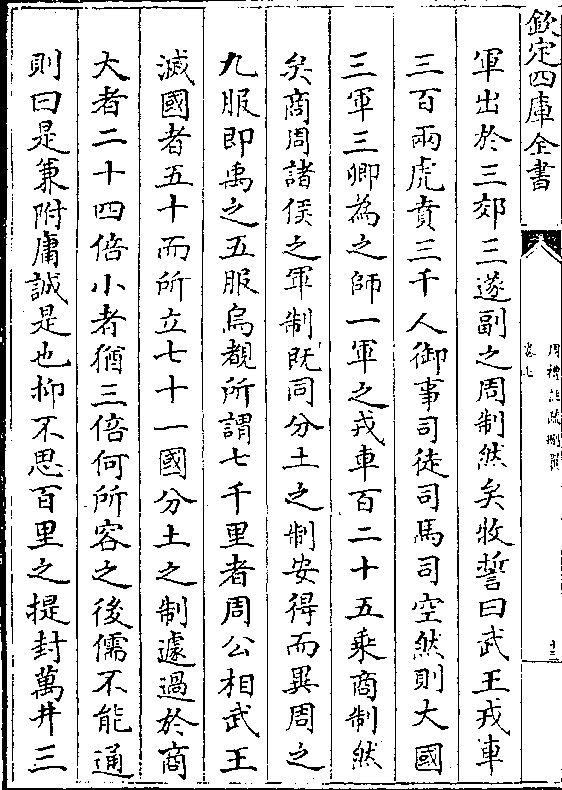 欽定四庫全書
周禮註疏刪翼
卷七
十三
軍出於三郊三遂副之周制然矣牧誓曰武王戎車
三百兩虎賁三千人御事司徒司馬司空然則大國
三軍三卿為之師一軍之戎車百二十五乘商制然
矣商周諸侯之軍制旣同分土之制安得而異周之
九服即禹之五服烏覩所謂七千里者周公相武王
滅國者五十而所立七十一國分土之制遽過於商
大者二十四倍小者猶三倍何所容之後儒不能通
則曰是兼附庸誠是也抑不思百里之提封萬井三